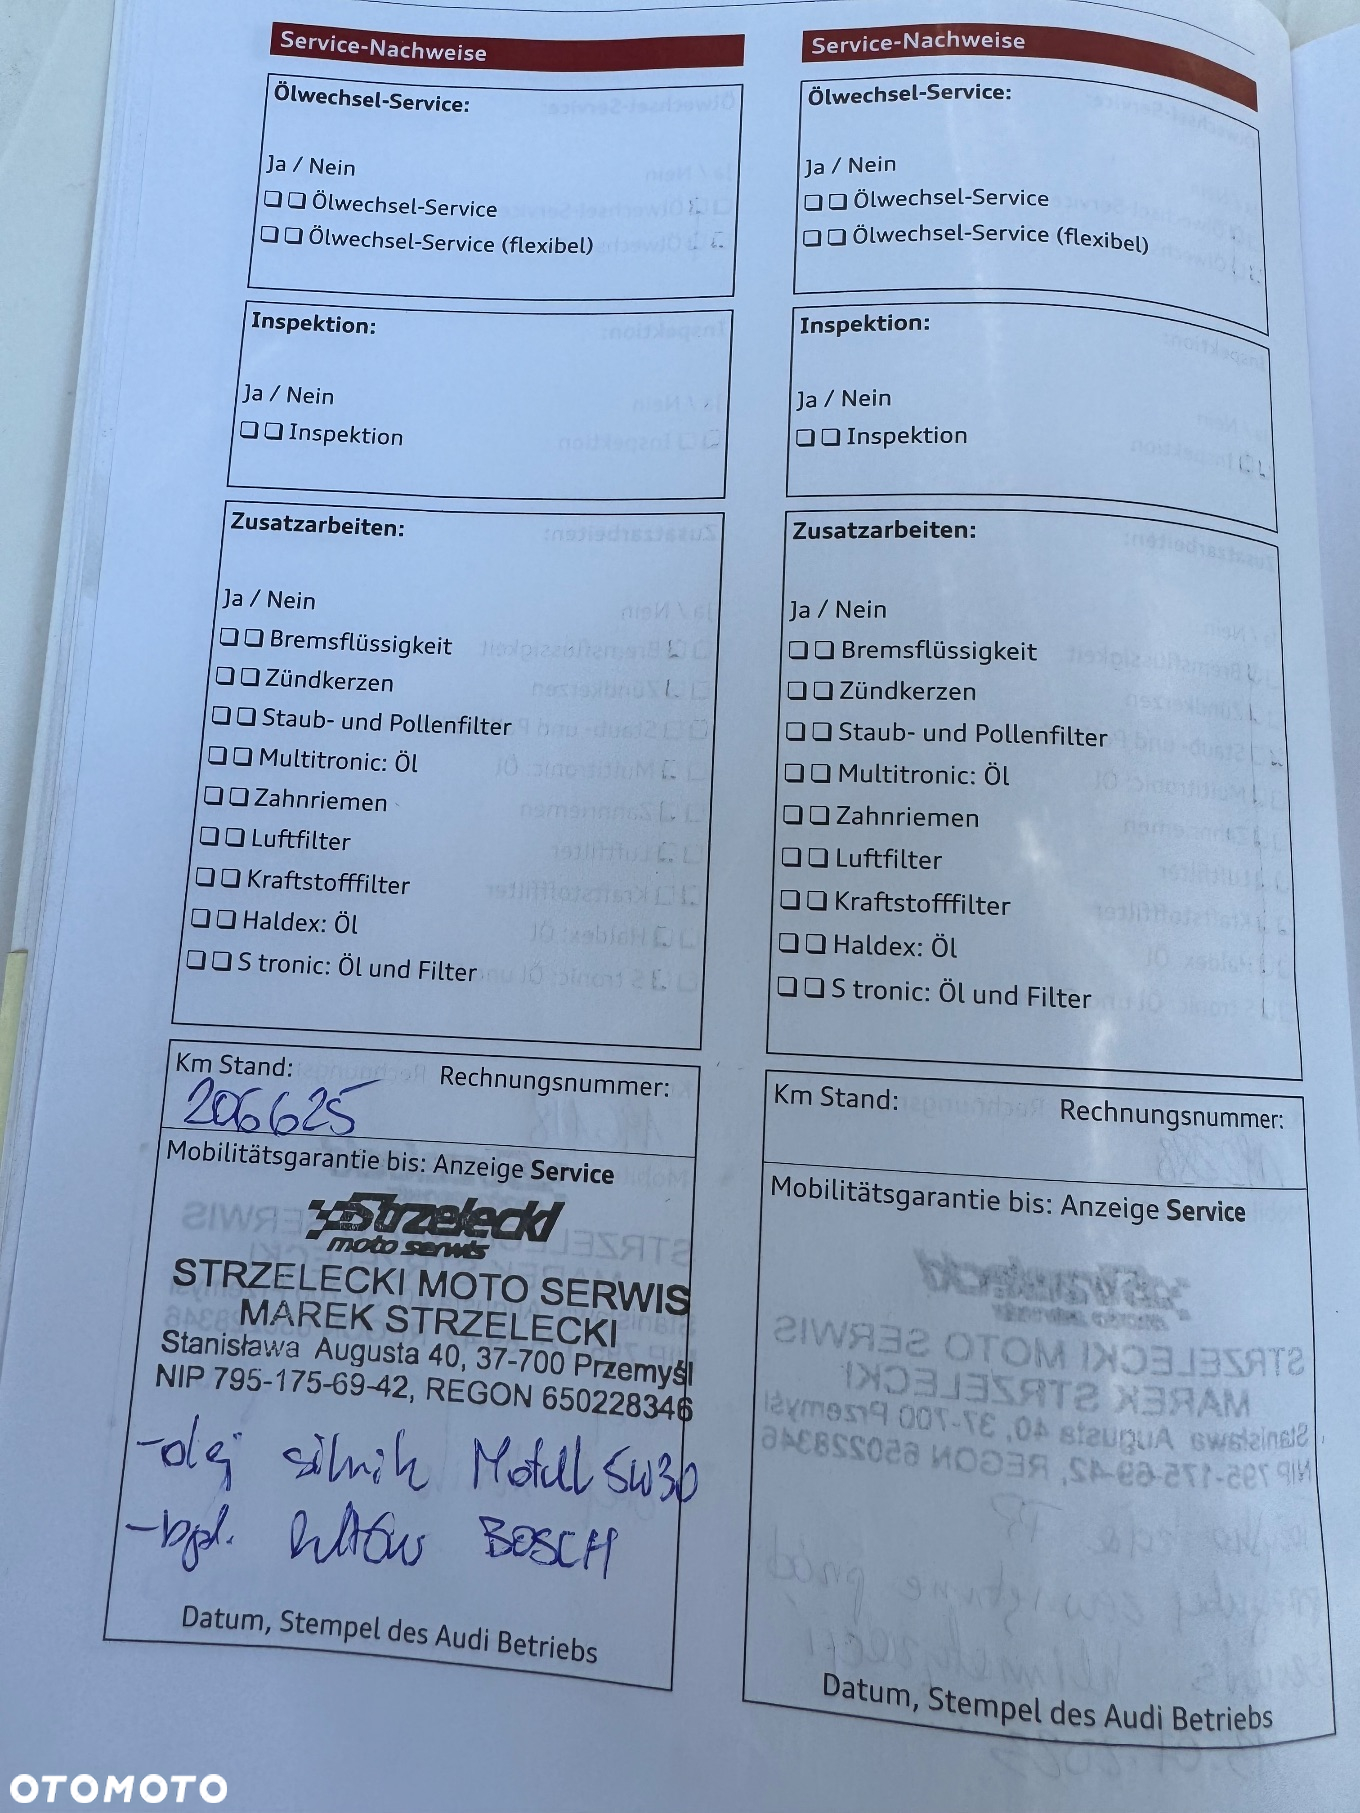 Service-Nachweise
Ölwechsel-Service:
Ja / Nein
Ölwechsel-Service
Ölwechsel-Service (flexibel)
Inspektion:
Ja / Nein
Inspektion
Zusatzarbeiten:
Ja / Nein
Bremsflüssigkeit
Zündkerzen
Staub- und Pollenfilter
Multitronic: Öl
Zahnriemen
Luftfilter
Kraftstofffilter
Haldex: Öl
S tronic: Öl und Filter
Km Stand: Rechnungsnummer:
206625
Mobilitätsgarantie bis: Anzeige Service
Strzelecki
moto serwis
STRZELECKI MOTO SERWIS
MAREK STRZELECKI
Stanisława Augusta 40, 37-700 Przemyśl
NIP 795-175-69-42, REGON 650228346
-olej silnik Motul 5W30
-kpl. filtrów BOSCH
Datum, Stempel des Audi Betriebs
Service-Nachweise
Ölwechsel-Service:
Ja / Nein
Ölwechsel-Service
Ölwechsel-Service (flexibel)
Inspektion:
Ja / Nein
Inspektion
Zusatzarbeiten:
Ja / Nein
Bremsflüssigkeit
Zündkerzen
Staub- und Pollenfilter
Multitronic: Öl
Zahnriemen
Luftfilter
Kraftstofffilter
Haldex: Öl
S tronic: Öl und Filter
Km Stand: Rechnungsnummer:
Mobilitätsgarantie bis: Anzeige Service
Datum, Stempel des Audi Betriebs
OTOMOTO